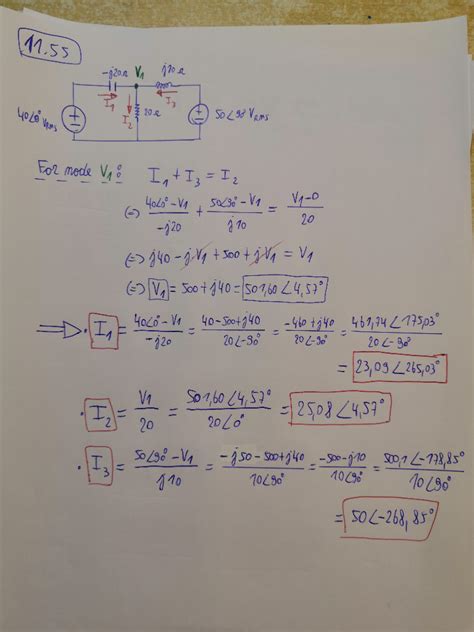 11.55
-j20Ω V₁ j20Ω
I₁ I₃
40∠0° VRMS I₂ 20Ω 50∠90° VRMS
For node V₁: I₁ + I₃ = I₂
(=) (40∠0° - V₁)/(-j20) + (50∠90° - V₁)/(j10) = (V₁ - 0)/20
(=) j40 - jV₁ + 500 + jV₁ = V₁
(=) V₁ = 500 + j40 = 501,60∠4,57°
⟹ · I₁ = (40∠0° - V₁)/(-j20) = (40 - 500 + j40)/(20∠-90°) = (-460 + j40)/(20∠-90°) = (461,74∠175,03°)/(20∠-90°)
= 23,09∠265,03°
· I₂ = V₁/20 = (501,60∠4,57°)/(20∠0°) = 25,08∠4,57°
· I₃ = (50∠90° - V₁)/(j10) = (-j50 - 500 + j40)/(10∠90°) = (-500 - j10)/(10∠90°) = (500,1∠-178,85°)/(10∠90°)
= 50∠-268,85°